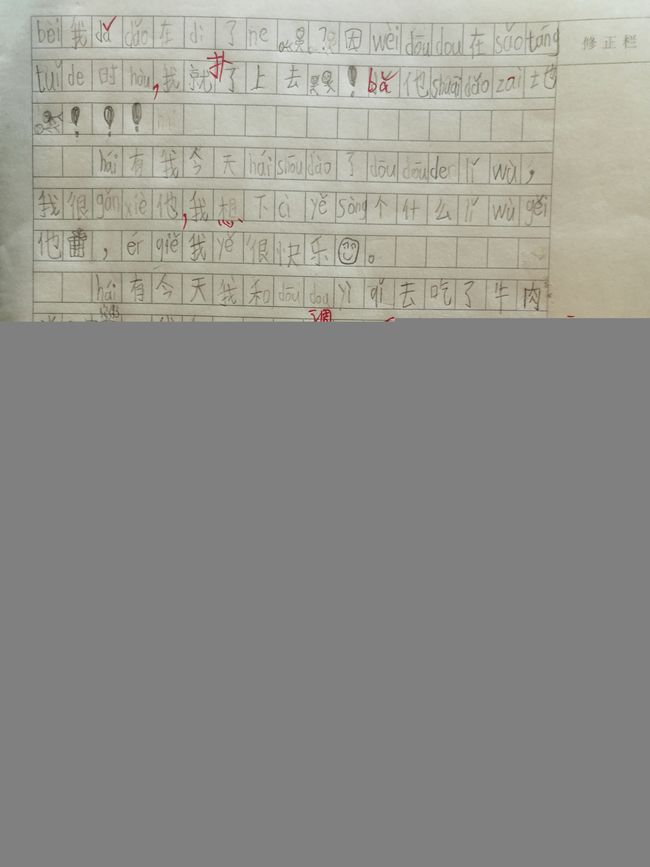 bèi我dǎ dǎo在dì了ne ?因wèi dōu dou在sǎo táng 修正栏
tuǐ de时hòu,我就扑了上去!bǎ他shuāi dǎo zài土也
!!!
hái有我今天hái shōu dào了dōu dōu der lǐ wù,
我很gǎn xiè他,我想下cì yě sòng个什么lǐ wù gěi
他,ér qiě我yě很快乐。
hái有今天我和dōu dou yì qǐ去吃了牛肉